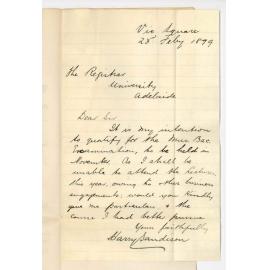 Vic Square
28 Feby 1899
The Registrar
University
Adelaide
Dear Sir
It is my intention
to qualify for the Mus. Bac.
Examination, to be held in
November. As I shall be
unable to attend the Lectures
this year, owing to other business
engagements; would you kindly
give me particulars & the
course I had better pursue
Yours faithfully
Harry Sandison